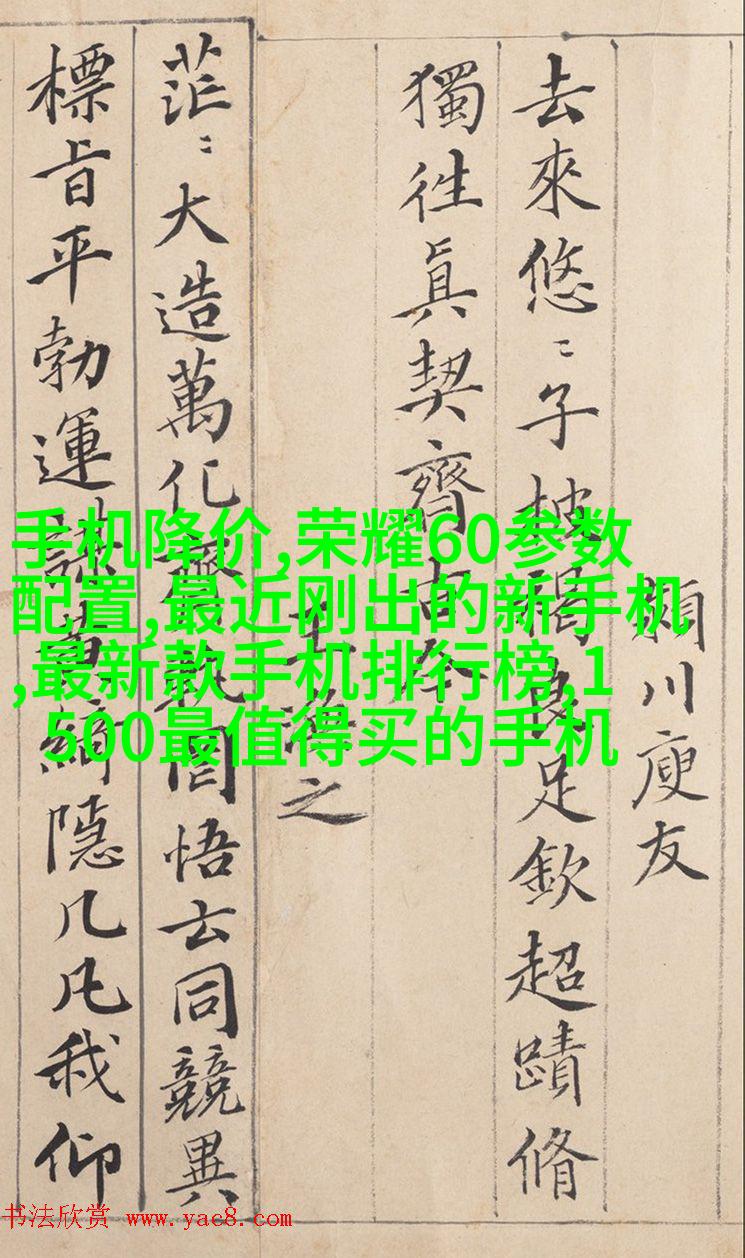 川庾友
去來悠〻子披褐良足欽超蹟脩
獨徃眞契齊古今
王渙之
茫〻大造萬化齊軌罔悟玄同競異
標旨平勃運謀黃綺隱几凡我仰
手机降价,荣耀60参数
配置,最近刚出的新手机
,最新款手机排行榜,1
500最值得买的手机
书法欣赏 www.yac8.com